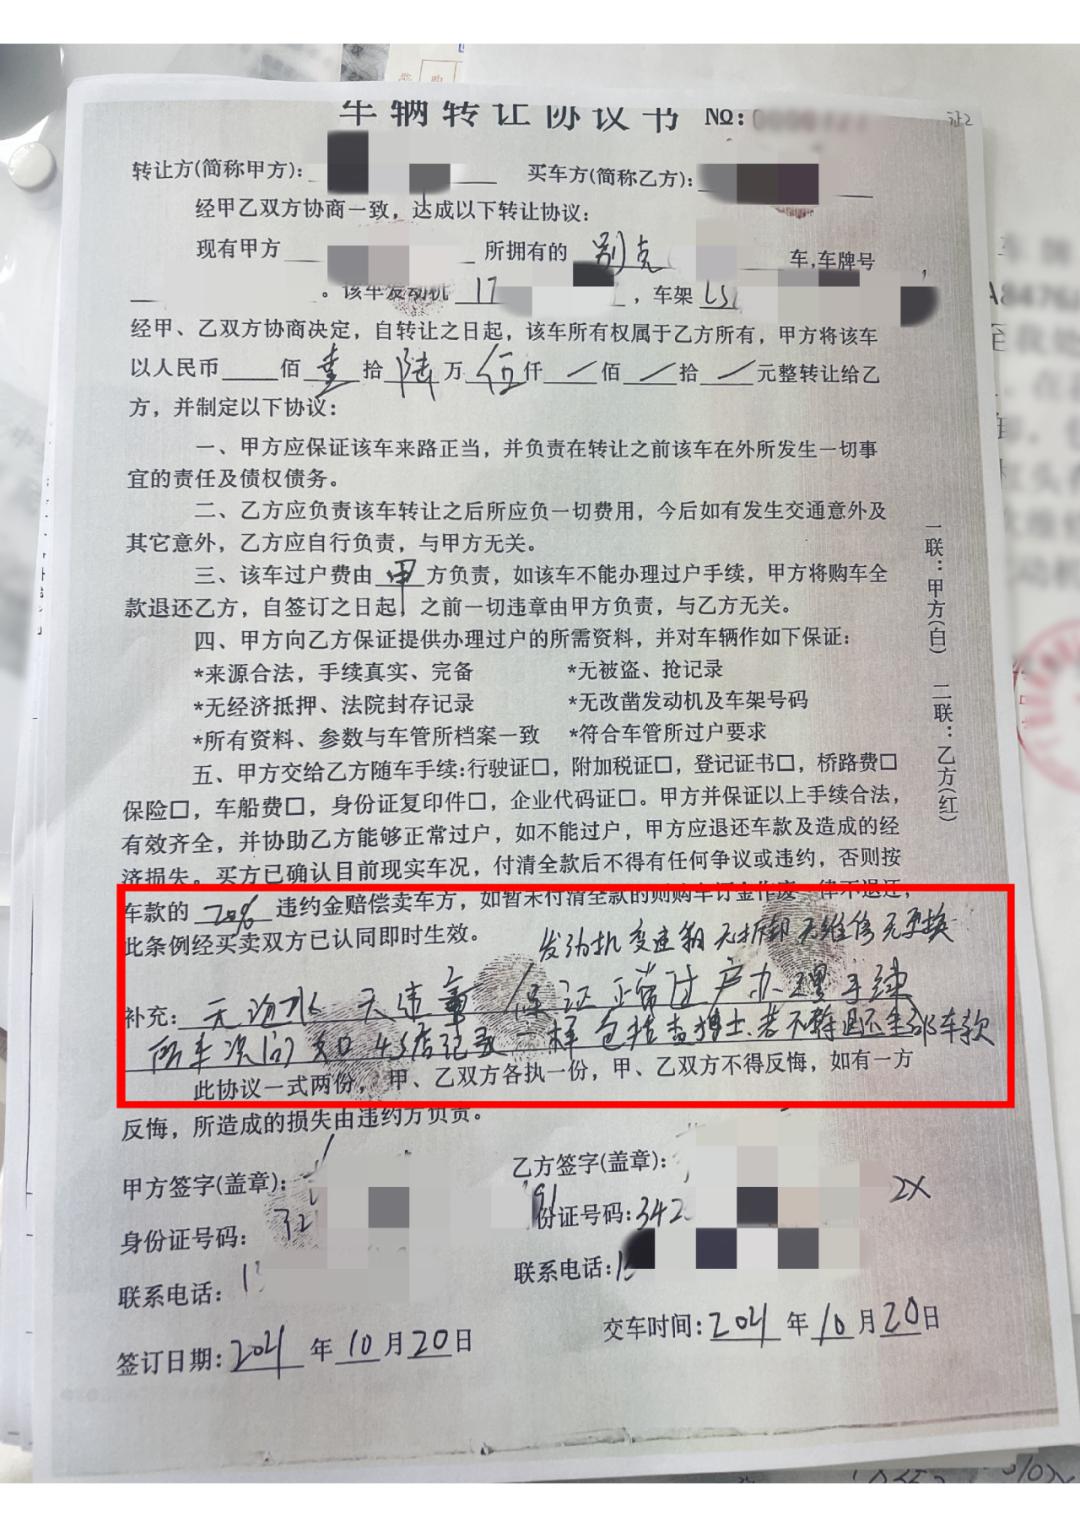 车辆转让协议书 №:
转让方(简称甲方): 买车方(简称乙方):
经甲乙双方协商一致，达成以下转让协议：
现有甲方 所拥有的 别克 车,车牌号
。该车发动机 17 ，车架
经甲、乙双方协商决定，自转让之日起，该车所有权属于乙方所有，甲方将该车
以人民币 佰 壹 拾 陆 万 伍 仟 / 佰 / 拾 / 元整转让给乙
方，并制定以下协议：
一、甲方应保证该车来路正当，并负责在转让之前该车在外所发生一切事
宜的责任及债权债务。
二、乙方应负责该车转让之后所应负一切费用，今后如有发生交通意外及
其它意外，乙方应自行负责，与甲方无关。
三、该车过户费由 甲 方负责，如该车不能办理过户手续，甲方将购车全
款退还乙方，自签订之日起，之前一切违章由甲方负责，与乙方无关。
四、甲方向乙方保证提供办理过户的所需资料，并对车辆作如下保证：
*来源合法，手续真实、完备 *无被盗、抢记录
*无经济抵押、法院封存记录 *无改凿发动机及车架号码
*所有资料、参数与车管所档案一致 *符合车管所过户要求
五、甲方交给乙方随车手续:行驶证□，附加税证□，登记证书□，桥路费□
保险□，车船费□，身份证复印件□，企业代码证□。甲方并保证以上手续合法，
有效齐全，并协助乙方能够正常过户，如不能过户，甲方应退还车款及造成的经
济损失。买方已确认目前现实车况，付清全款后不得有任何争议或违约，否则按
车款的 20% 违约金赔偿卖车方，如暂未付清全款的则购车订金作废一律不退还，
此条例经买卖双方已认同即时生效。
发动机 变速箱 无拆卸 无维修 无更换
补充: 无泡水 无违章 保证正常过户办理手续
所车次问 4S店记录一样 包括查博士.若不符退还全部车款
此协议一式两份，甲、乙双方各执一份，甲、乙双方不得反悔，如有一方
反悔，所造成的损失由违约方负责。
甲方签字(盖章): 乙方签字(盖章):
身份证号码: 32 份证号码:342 2X
联系电话: 1 联系电话:1
签订日期:2021 年 10 月 20 日 交车时间:2021 年 10 月 20 日
一联：甲方(白) 二联：乙方(红)